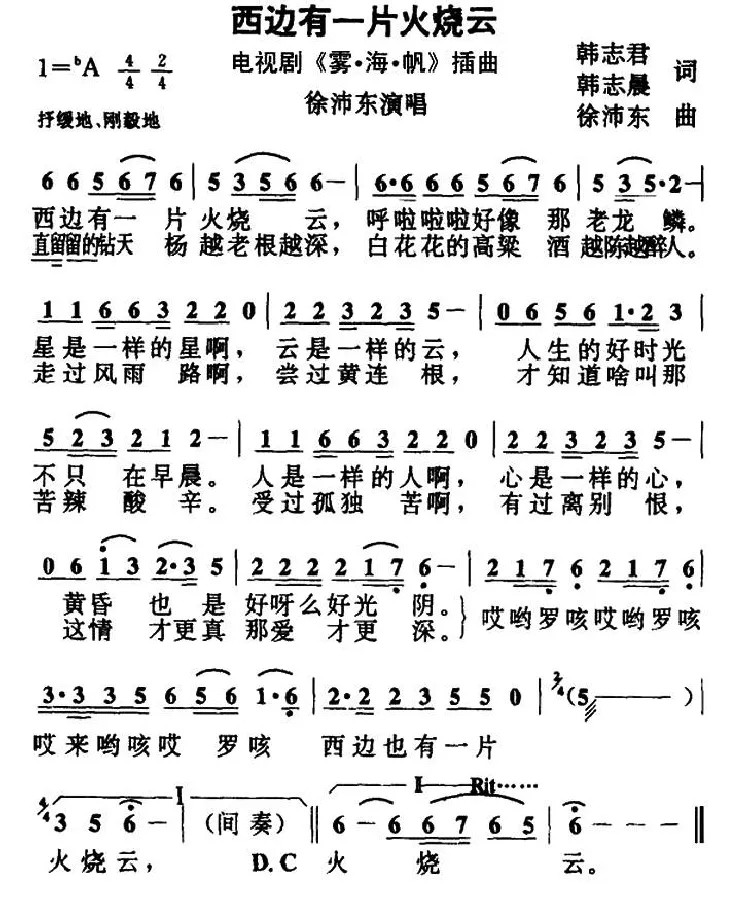 西边有一片火烧云
1=ᵇA 4/4 2/4
电视剧《雾·海·帆》插曲
韩志君
韩志晨 词
徐沛东 曲
徐沛东演唱
抒缓地、刚毅地
6 6 5 6 7 6 | 5 3 5 6 6 - | 6·6 6 6 5 6 7 6 | 5 3 5·2 - |
西边有一 片火烧 云，呼啦啦啦好像 那老龙 鳞。
直留留的钻天 杨越老根越深，白花花的高粱 酒越陈越醉人。
1 1 6 6 3 2 2 0 | 2 2 3 2 3 5 - | 0 6 5 6 1·2 3 |
星是一样的星啊， 云是一样的云， 人生的好时光
走过风雨 路啊， 尝过黄连 根， 才知道啥叫那
5 2 3 2 1 2 - | 1 1 6 6 3 2 2 0 | 2 2 3 2 3 5 - |
不只 在早晨。 人是一样的人啊， 心是一样的心，
苦辣 酸 辛。 受过孤独 苦啊， 有过离别 恨，
0 6 1 3 2·3 5 | 2 2 2 2 1 7 6 - | 2 1 7 6 2 1 7 6 |
黄昏 也 是 好呀么好光 阴。 哎哟罗咳哎哟罗咳
这情 才更真 那爱 才更 深。
3·3 3 5 6 5 6 1·6 | 2·2 2 3 5 5 0 | 2/4 (5 —— )
哎来哟咳哎 罗咳 西边也有一片
I I Rit······
4/4 3 5 6 - | (间奏) ‖ 6 - 6 6 7 6 5 | 6 - - - ‖
火烧云， D.C 火 烧 云。